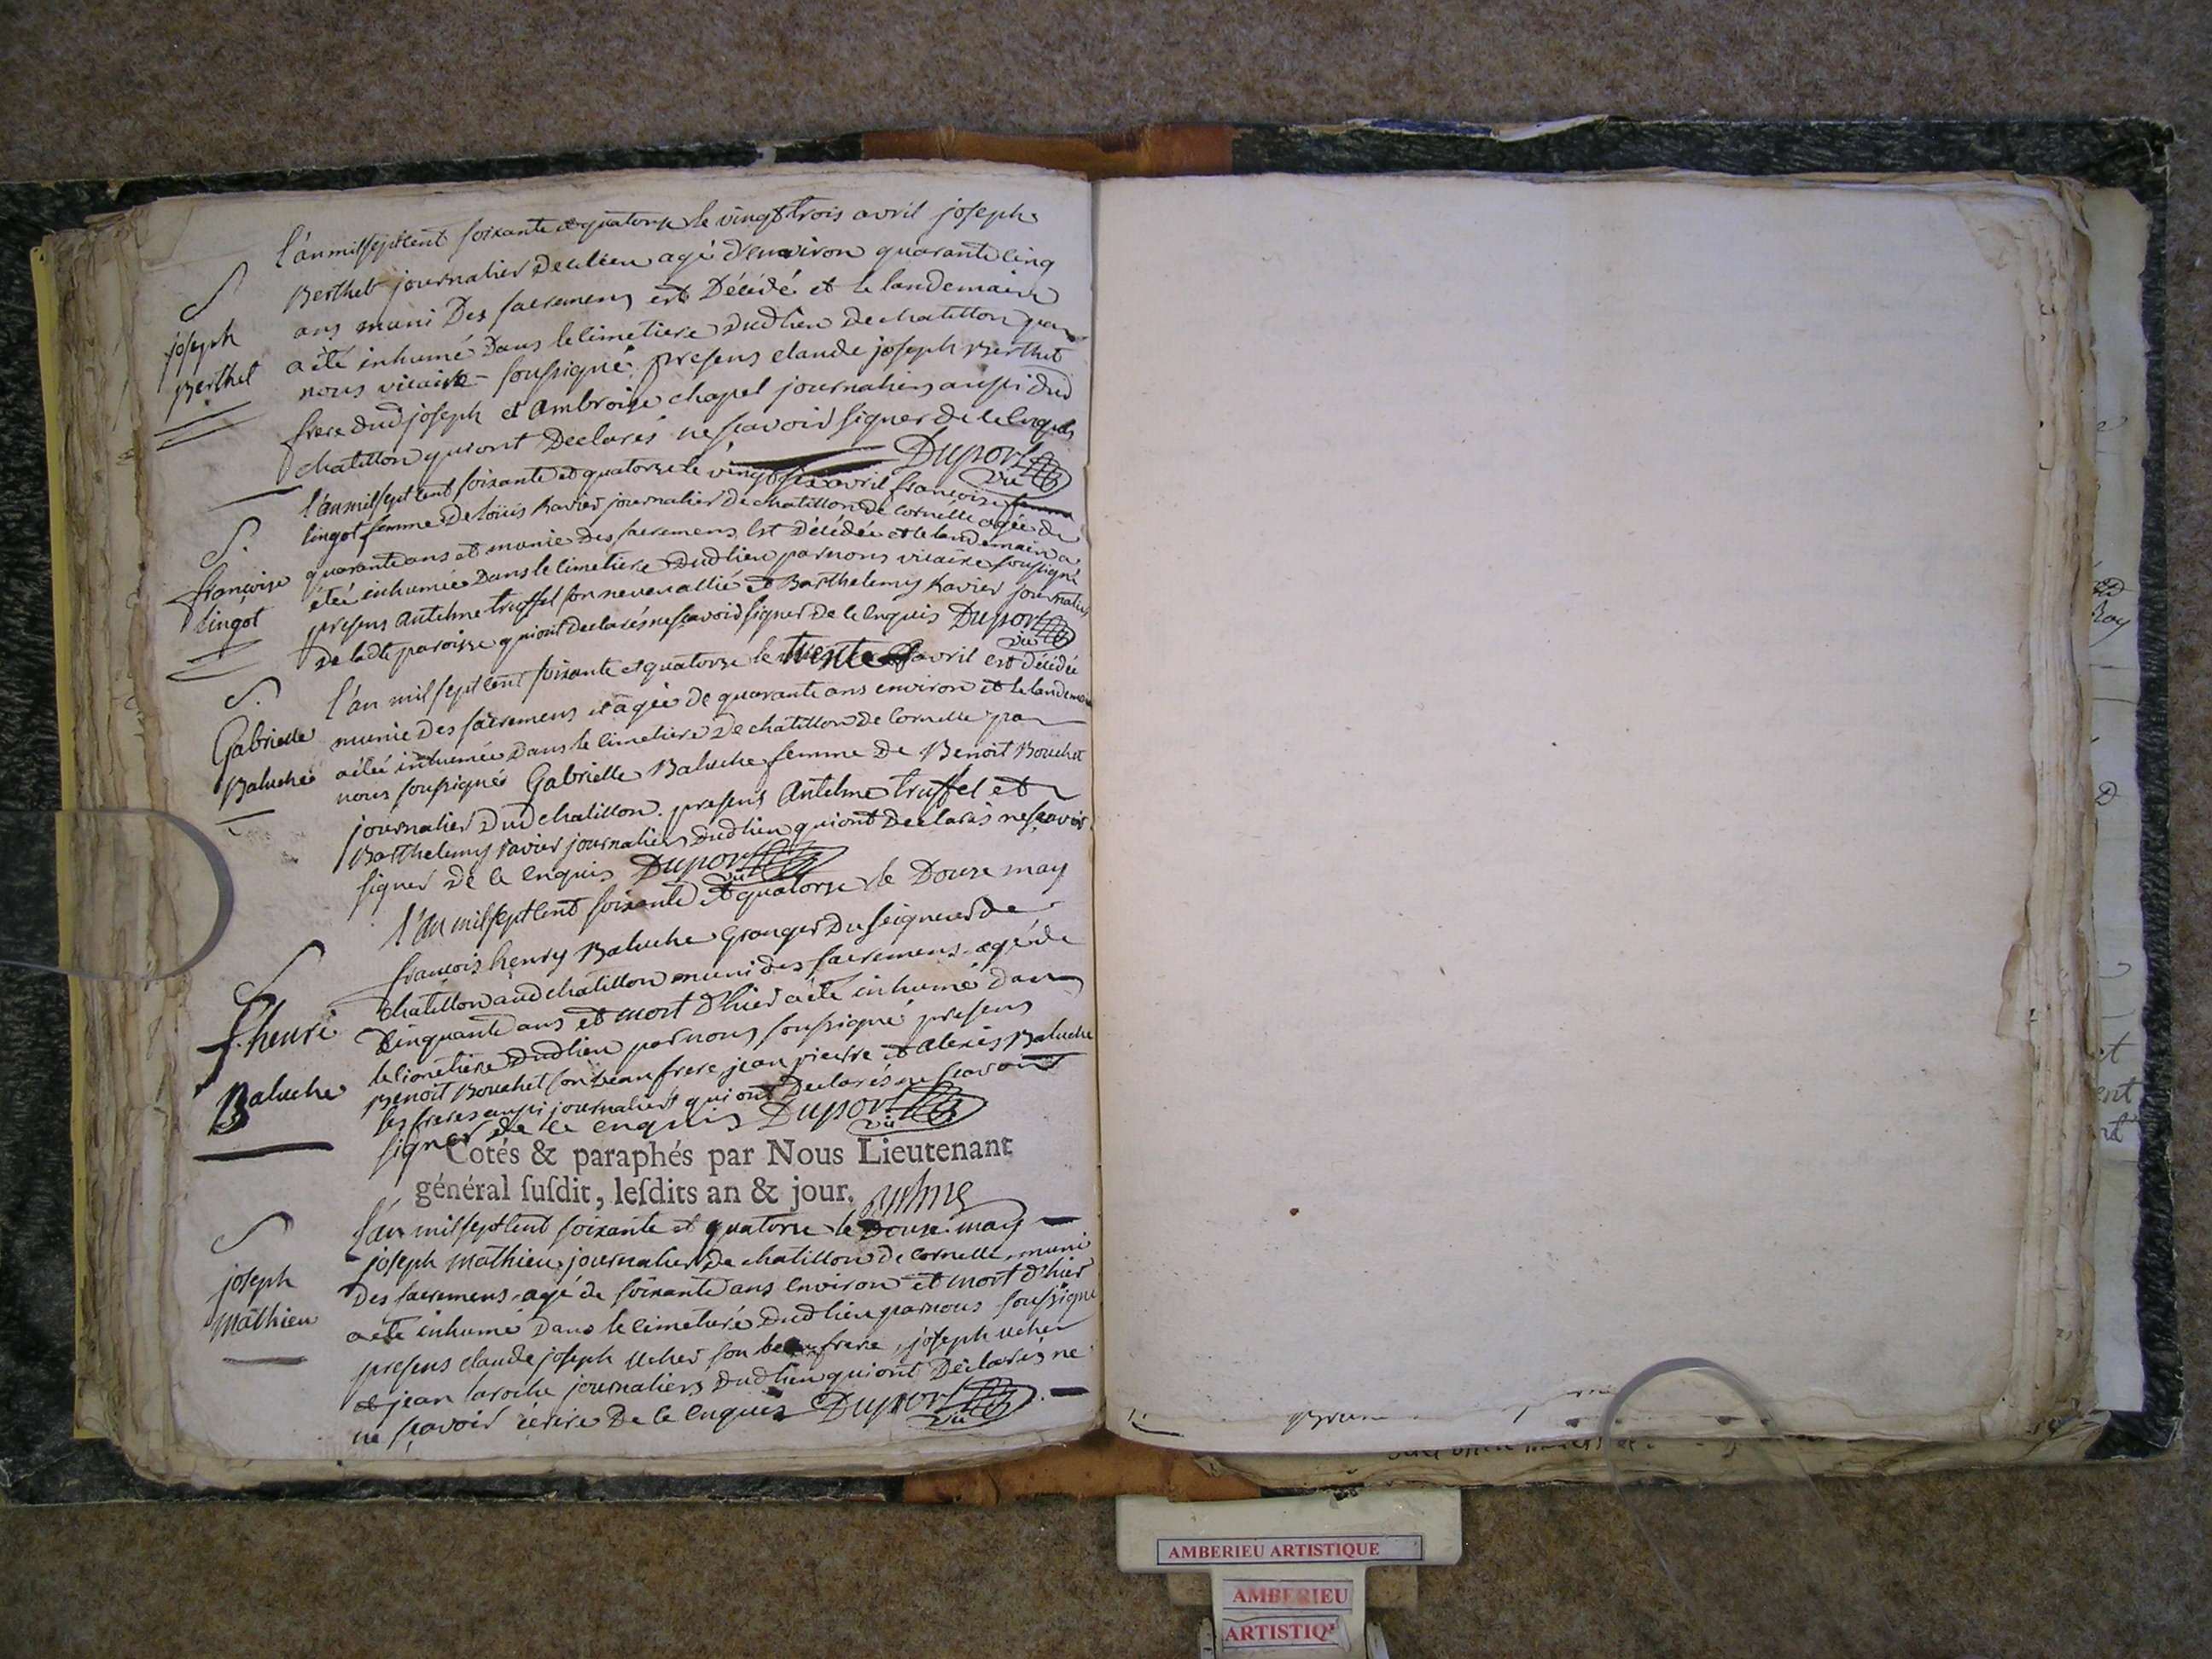 l'an mil sept cent soixante et quatorze le vingt trois avril joseph
Berthet journalier de ce lieu agé d'environ quarante cinq
ans muni des sacremens est décédé et le landemain
a été inhumé dans le cimetiere dud lieu de chatillon par
nous vicaire soussigné presens claude joseph Berthet
frere dud joseph et Ambroise chapel journaliers aussi dud
chatillon qui ont declarés ne scavoir signer de ce enquis
Duport vic
S
joseph
Berthet
l'an mil sept cent soixante et quatorze le vingt six avril françoise femme
lingot femme de loüis Ravier journalier de chatillon de cornelle agée de
quarante ans et munie des sacremens est décédée et le landemain a
étée inhumée dans le cimetiere dud lieu par nous vicaire soussigné
presens Antelme truffel son neveu allié et Barthelemy Ravier journaliers
de lad te paroisse qui ont declarés ne scavoir signer de ce enquis Duport vic
S.
françoise
lingot
l'an mil sept cent soixante et quatorze le trente avril est décédée
munie des sacremens et agée de quarante ans environ et le landemain
a étée inhumée dans le cimetiere de chatillon de cornelle par
nous soussignés Gabrielle Baluche femme de Benoit Bouchet
journalier dud chatillon. presens Antelme truffel et
Barthelemy ravier journaliers dud lieu qui ont declarés ne scavoir
signer de ce enquis Duport vic
S.
Gabrielle
Baluche
l'an mil sept cent soixante et quatorze le douze may
francois henry Baluche Granger du seigneur de
chatillon aud chatillon muni des sacremens agé de
cinquante ans et mort d'hier a été inhumé dans
le cimetiere dud lieu par nous soussigné presens
Benoit Bouchet son beau frere jean pierre et alexis Baluche
ses freres aussi journaliers qui ont declarés ne scavoir
signer de ce enquis Duport vic
S
f. henri
Baluche
Cotés & paraphés par Nous Lieutenant
général susdit, lesdits an & jour.
l'an mil sept cent soixante et quatorze le douze may
joseph mathieu journalier de chatillon de cornelle muni
des sacremens agé de soixante ans environ et mort d'hier
a été inhumé dans le cimetiere dud lieu par nous soussigné
presens claude joseph Ucher son beau frere, joseph ucher
et jean laroche journaliers dud lieu qui ont declarés ne
ne scavoir écrire de ce enquis Duport vic
S
joseph
mathieu
AMBERIEU ARTISTIQUE
AMBERIEU
ARTISTIQ